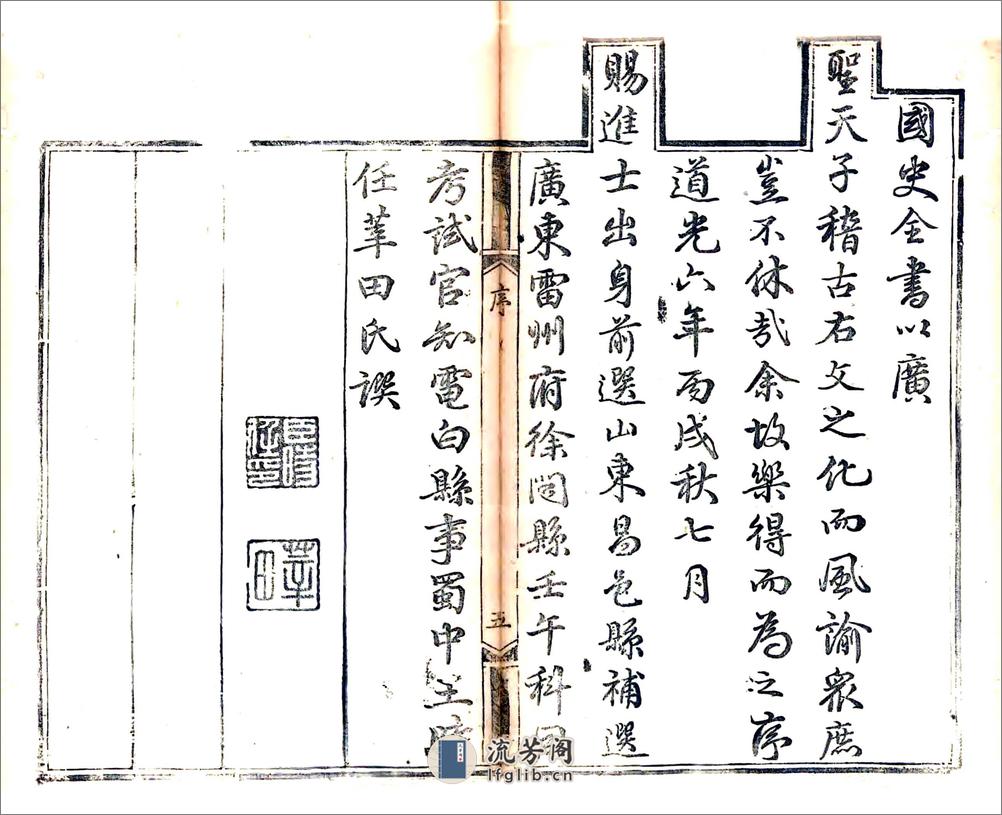 國史全書以廣
聖天子稽古右文之化而風諭衆庶
豈不休哉余故樂得而為之序
道光六年丙戌秋七月
賜進士出身前選山東昌邑縣補選
廣東雷州府徐聞縣壬午科同
序
五
考試官知電白縣事蜀中王
任莘田氏譔
莘田
流芳阁
lfglib.cn